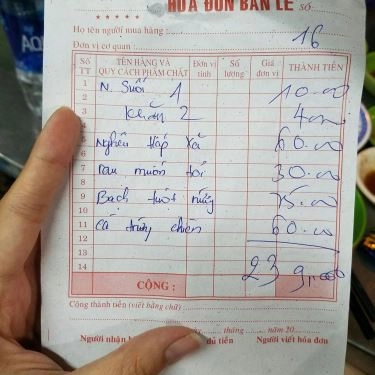 AQ
HÓA ĐƠN BÁN LẺ Số
★★★★★
Họ tên người mua hàng: 16
Đơn vị cơ quan:
Số TT TÊN HÀNG VÀ QUY CÁCH PHẨM CHẤT Đơn vị tính Số lượng Giá đơn vị THÀNH TIỀN
1 N. Suối 1 10.00
2
3 Khăn 2 4
4
5 Nghêu hấp xả 60.00
6
7 rau muốn tỏi 30.00
8
9 Bạch tuột nướng 75.00
10
11 cá trứng chiên 60.00
12
13
14 239.000
CỘNG:
Cộng thành tiền (viết bằng chữ)
Ngày tháng năm 20
Người nhận đủ tiền Người viết hóa đơn